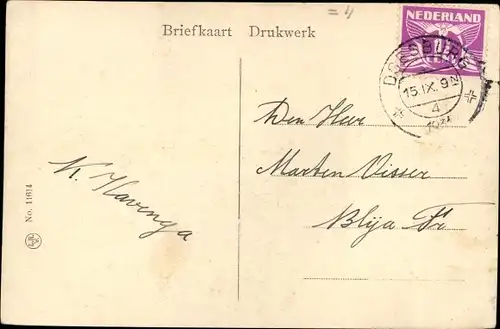 = 4
Briefkaart Drukwerk
NEDERLAND
DOESBURG
15.IX.9N
4
Den Heer
Marten Visser
Blija Fr.
K. Havinga
No. 11614